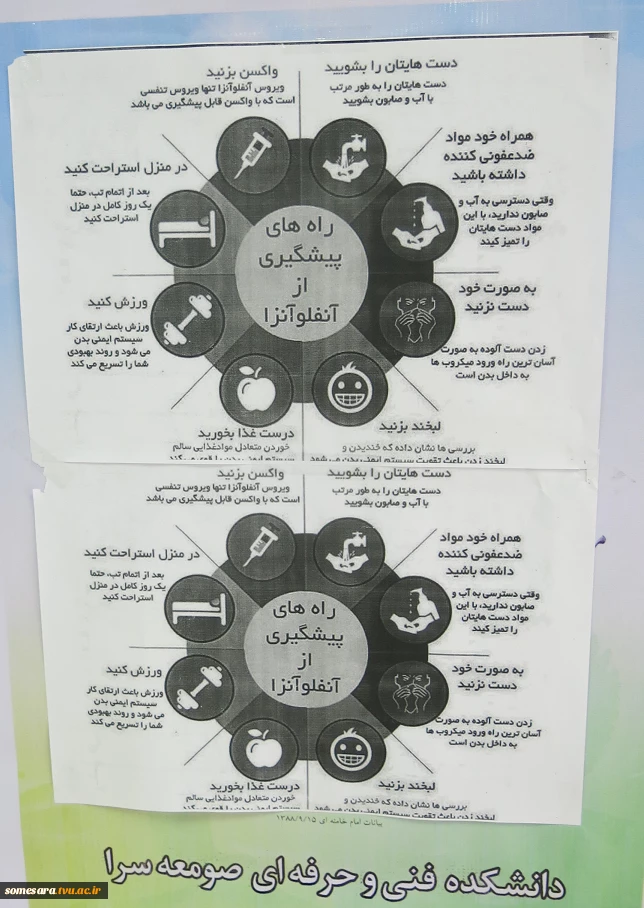 دست هایتان را بشویید
دست هایتان را به طور مرتب
با آب و صابون بشویید
همراه خود مواد
ضدعفونی کننده
داشته باشید
وقتی دسترسی به آب و
صابون ندارید، با این
مواد دست هایتان
را تمیز کیند
به صورت خود
دست نزنید
زدن دست آلوده به صورت
آسان ترین راه ورود میکروب ها
به داخل بدن است
لبخند بزنید
بررسی ها نشان داده که خندیدن و
لبخند زدن باعث تقویت سیستم ایمنی بدن می شود
درست غذا بخورید
خوردن متعادل موادغذایی سالم
سیستم ایمنی بدن را قوی می کند
ورزش کنید
ورزش باعث ارتقای کار
سیستم ایمنی بدن
می شود و روند بهبودی
شما را تسریع می کند
در منزل استراحت کنید
بعد از اتمام تب، حتما
یک روز کامل در منزل
استراحت کنید
واکسن بزنید
ویروس آنفلوآنزا تنها ویروس تنفسی
است که با واکسن قابل پیشگیری می باشد
راه های
پیشگیری
از
آنفلوآنزا
دست هایتان را بشویید
دست هایتان را به طور مرتب
با آب و صابون بشویید
همراه خود مواد
ضدعفونی کننده
داشته باشید
وقتی دسترسی به آب و
صابون ندارید، با این
مواد دست هایتان
را تمیز کیند
به صورت خود
دست نزنید
زدن دست آلوده به صورت
آسان ترین راه ورود میکروب ها
به داخل بدن است
لبخند بزنید
بررسی ها نشان داده که خندیدن و
لبخند زدن باعث تقویت سیستم ایمنی بدن می شود
درست غذا بخورید
خوردن متعادل موادغذایی سالم
سیستم ایمنی بدن را قوی می کند
ورزش کنید
ورزش باعث ارتقای کار
سیستم ایمنی بدن
می شود و روند بهبودی
شما را تسریع می کند
در منزل استراحت کنید
بعد از اتمام تب، حتما
یک روز کامل در منزل
استراحت کنید
واکسن بزنید
ویروس آنفلوآنزا تنها ویروس تنفسی
است که با واکسن قابل پیشگیری می باشد
راه های
پیشگیری
از
آنفلوآنزا
بیانات امام خامنه ای ۱۳۸۸/۹/۱۵
دانشکده فنی و حرفه ای صومعه سرا
somesara.tvu.ac.ir